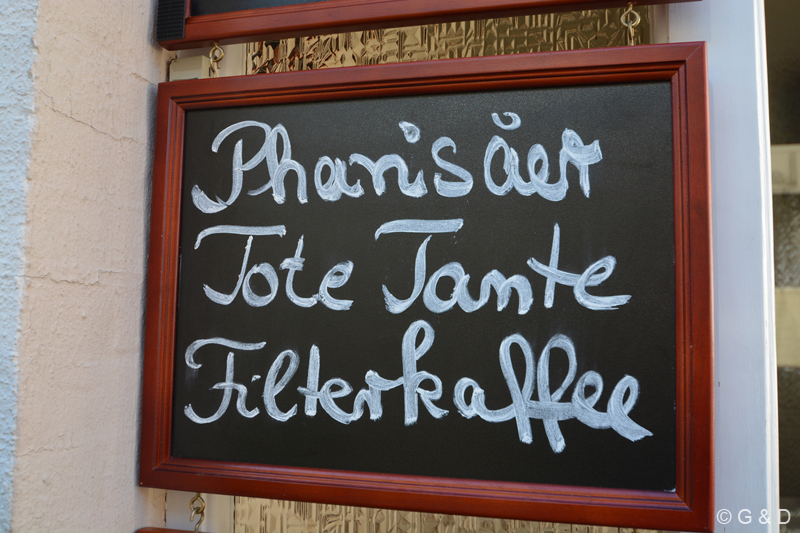 Pharisåer
Tote Tante
Filterkaffee
© G & D